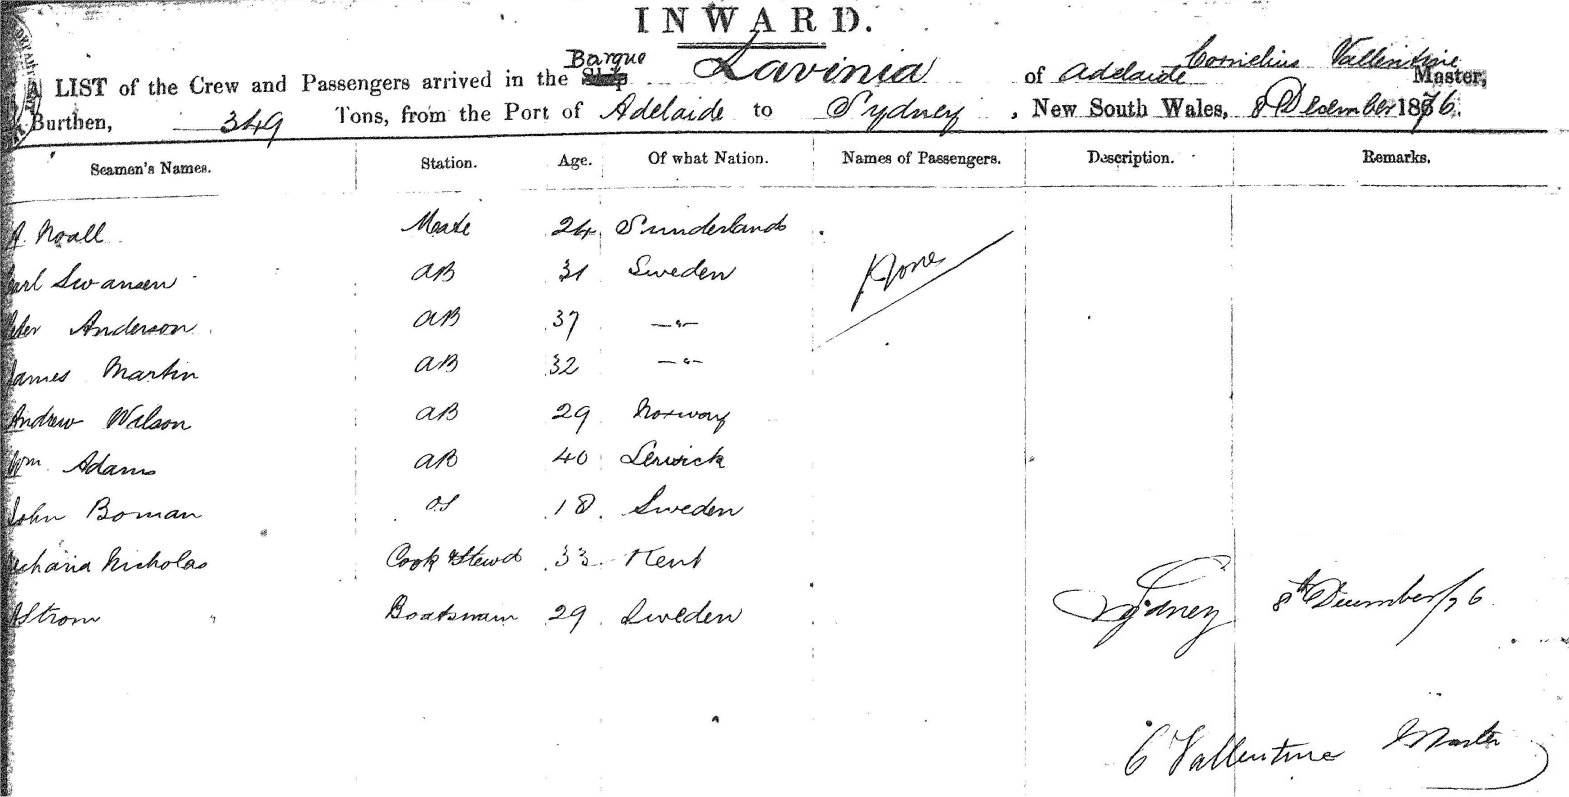 INWARD.
Barque Cornelius Vallentine
A LIST of the Crew and Passengers arrived in the Ship Lavinia of Adelaide Master,
Burthen, 349 Tons, from the Port of Adelaide to Sydney, New South Wales, 8 December 1876.
Seamen's Names. Station. Age. Of what Nation. Names of Passengers. Description. Remarks.
Noall Mate 24 Sunderland
Carl Swansen AB 31 Sweden None
Peter Anderson AB 37 —"—
James Martin AB 32 —"—
Andrew Wilson AB 29 Norway
Wm Adams AB 40 Lerwick
John Boman OS 18 Sweden
Nicholas Cook & Stewd 33 Kent
Astrom Boatswain 29 Sweden
Sydney 8th December/76
C Vallentine Master